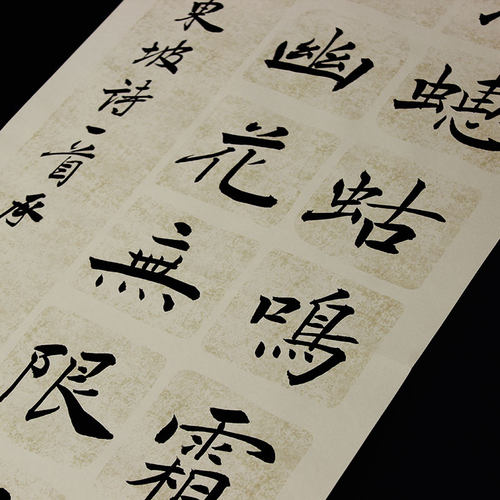 蟪蛄鳴霜
幽花無限
東坡诗一首